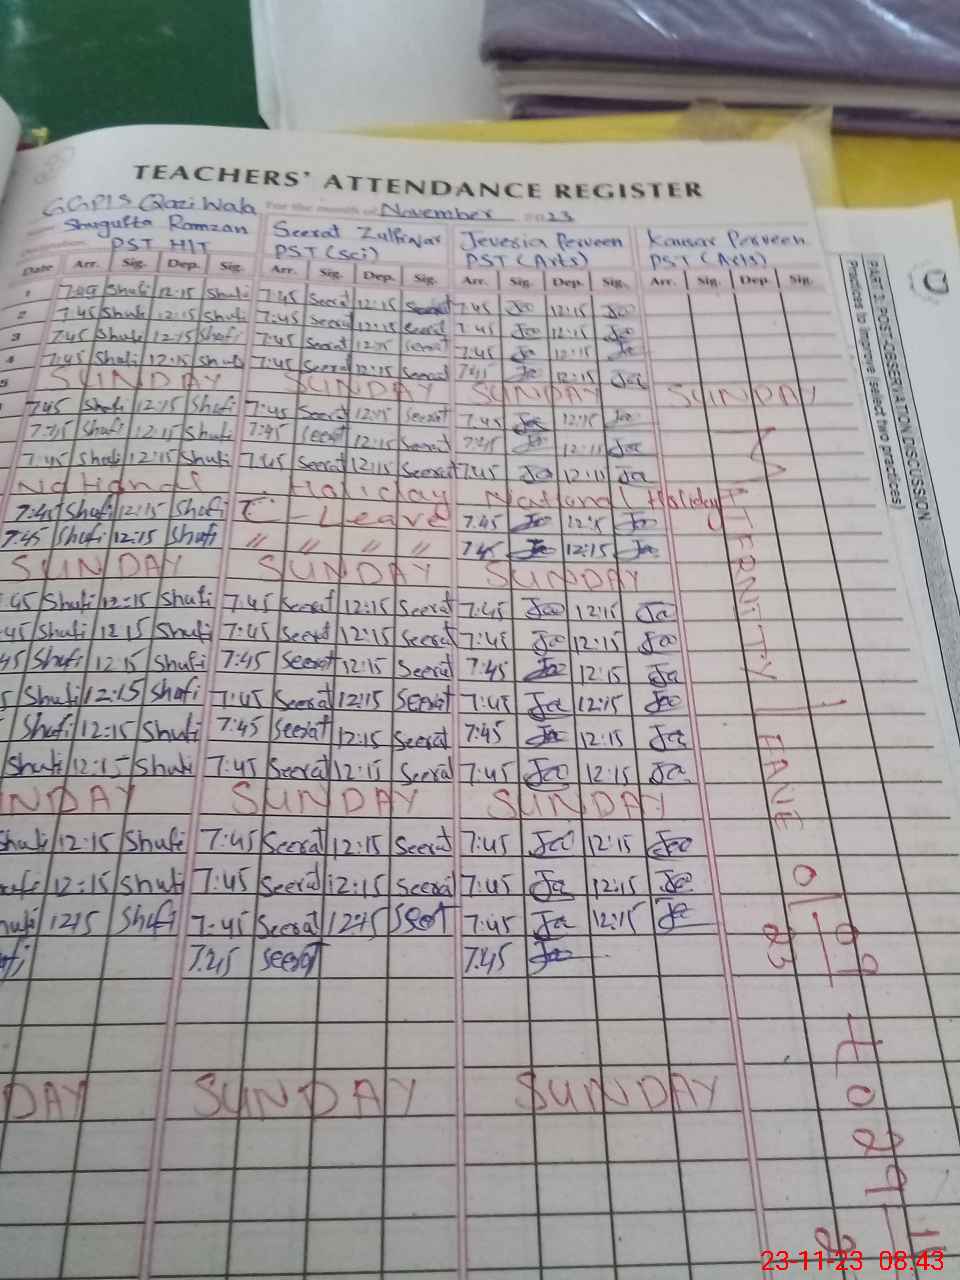 TEACHERS' ATTENDANCE REGISTER
GGP/S Qazi Wala For the month of November 2023
Shugufta Ramzan Seerat Zulfiqar Javeria Perveen Kausar Perveen
PST HIT PST (Sci) PST (Arts) PST (Arts)
Date Arr. Sig. Dep. Sig. Arr. Sig. Dep. Sig. Arr. Sig. Dep. Sig. Arr. Sig. Dep. Sig.
1 7:45 Shufi 12:15 Shufi 7:45 Seerat 12:15 Seerat 7:45 Jea 12:15 Jea
2 7:45 Shufi 12:15 Shufi 7:45 Seerat 12:15 Seerat 7:45 Jea 12:15 Jea
3 7:45 Shufi 12:15 Shufi 7:45 Seerat 12:15 Seerat 7:45 Ja 12:15 Ja
4 7:45 Shufi 12:15 Shufi 7:45 Seerat 12:15 Seerat 7:45 Ja 12:15 Ja
5 SUNDAY SUNDAY SUNDAY SUNDAY
7:45 Shufi 12:15 Shufi 7:45 Seerat 12:15 Seerat 7:45 Jea 12:15 Jea
7:45 Shufi 12:15 Shufi 7:45 Seerat 12:15 Seerat 7:45 Ja 12:15 Jea
7:45 Shufi 12:15 Shufi 7:45 Seerat 12:15 Seerat 7:45 Ja 12:15 Ja
National Holiday National Holiday
7:45 Shufi 12:15 Shufi C-Leave 7:45 Jea 12:15 Ja
7:45 Shufi 12:15 Shufi " " " " 7:45 Ja 12:15 Ja
SUNDAY SUNDAY SUNDAY
:45 Shufi 12:15 Shufi 7:45 Seerat 12:15 Seerat 7:45 Jea 12:15 Ja
45 Shufi 12:15 Shufi 7:45 Seerat 12:15 Seerat 7:45 Jea 12:15 Jea
45 Shufi 12:15 Shufi 7:45 Seerat 12:15 Seerat 7:45 Jea 12:15 Ja
5 Shufi 12:15 Shufi 7:45 Seerat 12:15 Seerat 7:45 Ja 12:15 Jea
Shufi 12:15 Shufi 7:45 Seerat 12:15 Seerat 7:45 Ja 12:15 Ja
Shufi 12:15 Shufi 7:45 Seerat 12:15 Seerat 7:45 Jea 12:15 Ja
NDAY SUNDAY SUNDAY
Shufi 12:15 Shufi 7:45 Seerat 12:15 Seerat 7:45 Jea 12:15 Jea
12:15 Shufi 7:45 Seerat 12:15 Seerat 7:45 Ja 12:15 Ja
1215 Shufi 7:45 Seerat 1215 Seerat 7:45 Ja 12:15 Ja
7:45 Seerat 7:45 Jea
DAY SUNDAY SUNDAY
LEAVE
to 29
PART 2: POST-OBSERVATION DISCUSSION
Practices to improve (select two practices)
23-11-23 08:43